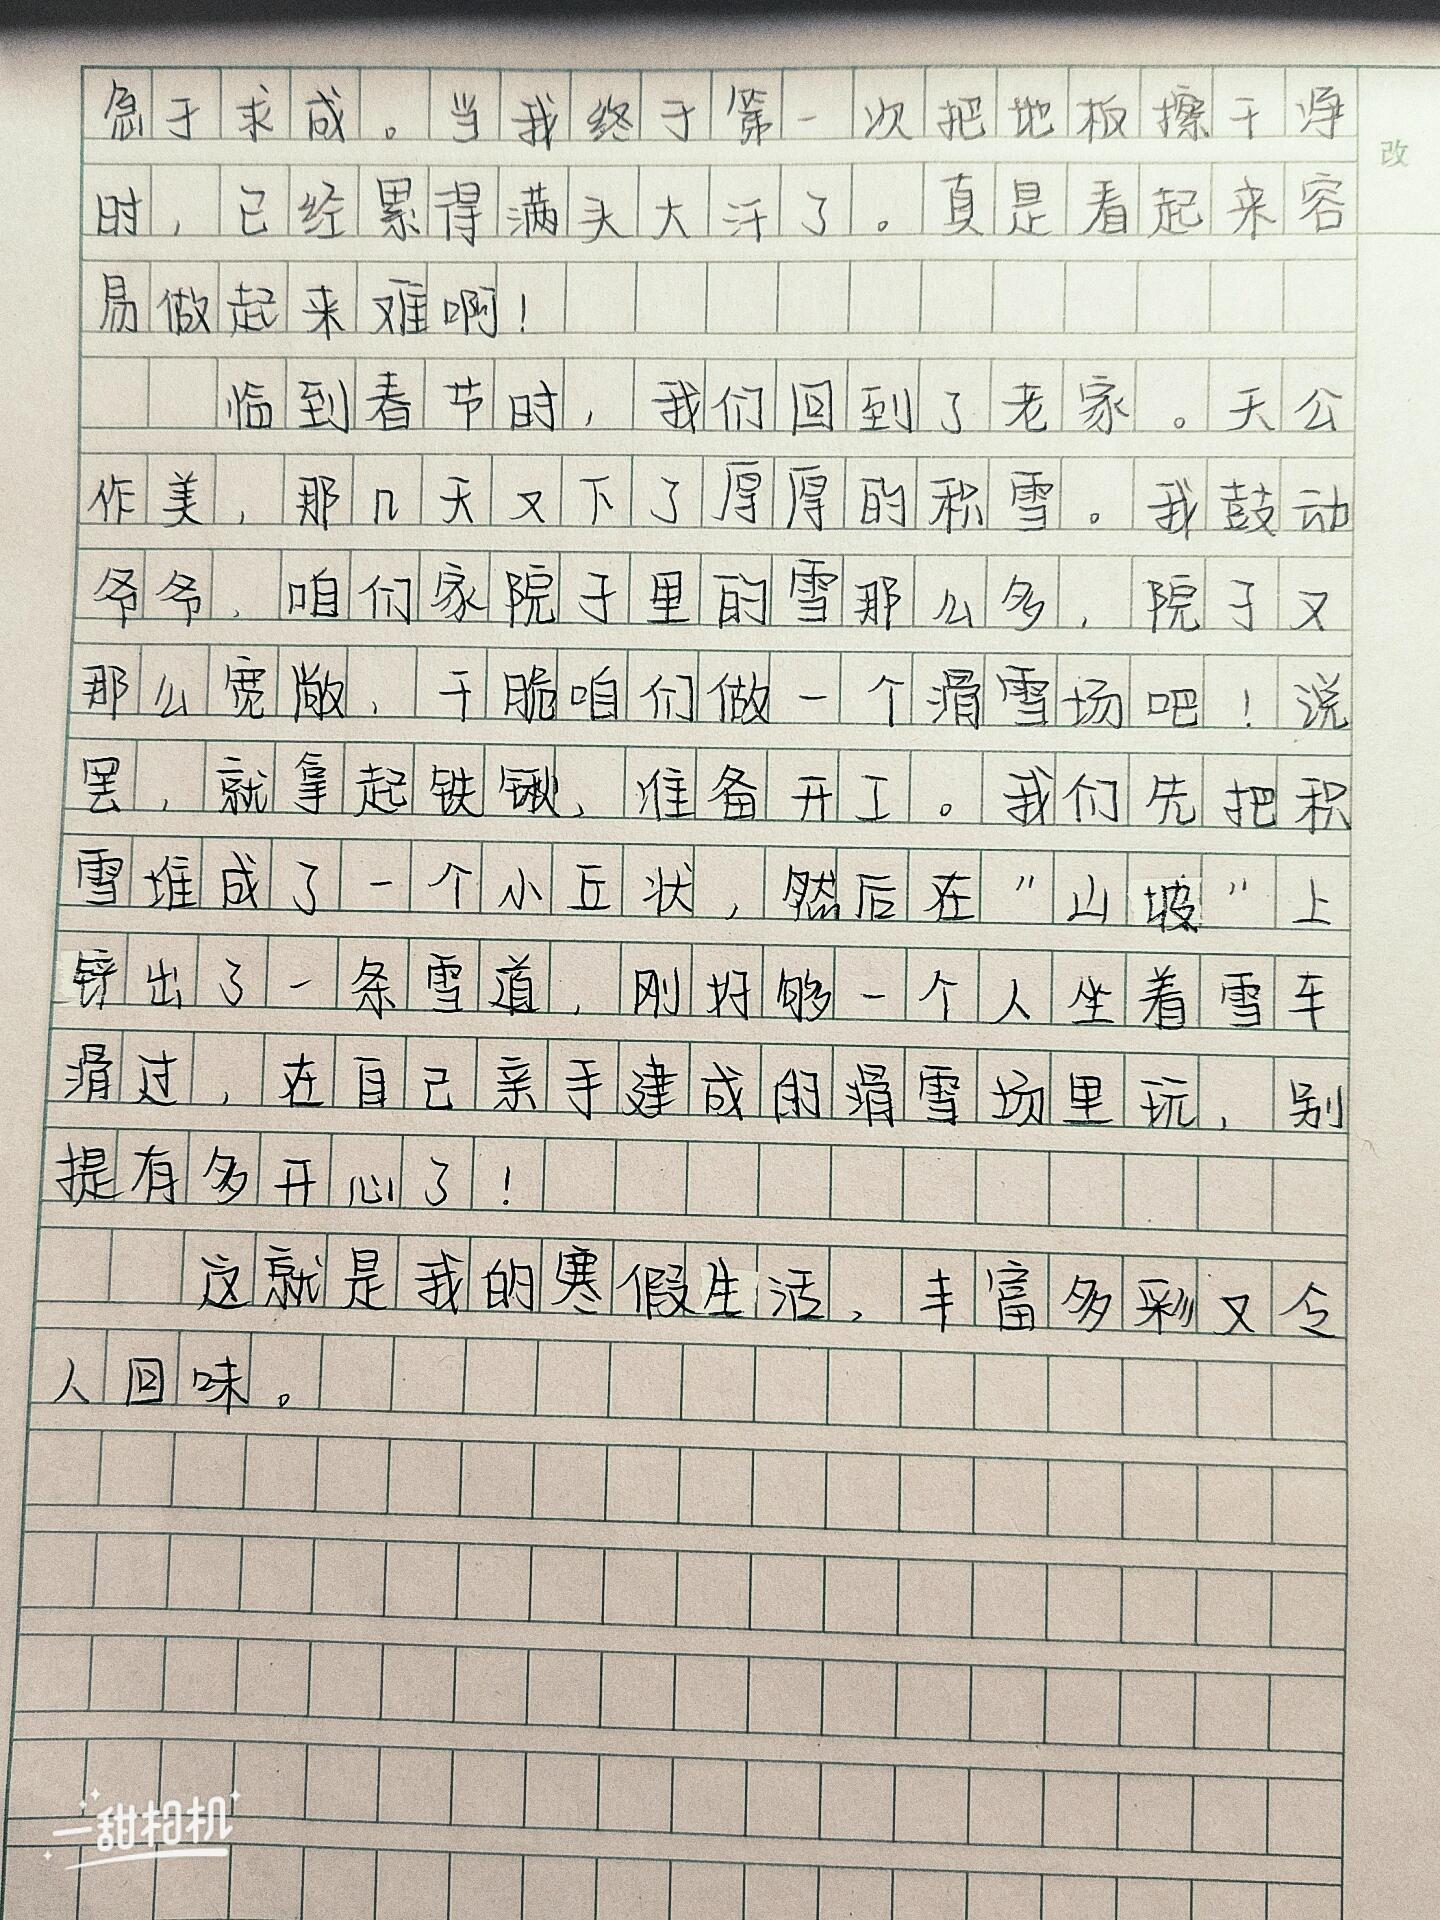 急于求成。当我终于第一次把地板擦干净
改
时，已经累得满头大汗了。真是看起来容
易做起来难啊！
临到春节时，我们回到了老家。天公
作美，那几天又下了厚厚的积雪。我鼓动
爷爷，咱们家院子里的雪那么多，院子又
那么宽敞，干脆咱们做一个滑雪场吧！说
罢，就拿起铁锹，准备开工。我们先把积
雪堆成了一个小丘状，然后在“山坡”上
铲出了一条雪道，刚好够一个人坐着雪车
滑过，在自己亲手建成的滑雪场里玩，别
提有多开心了！
这就是我的寒假生活，丰富多彩又令
人回味。
一甜相机